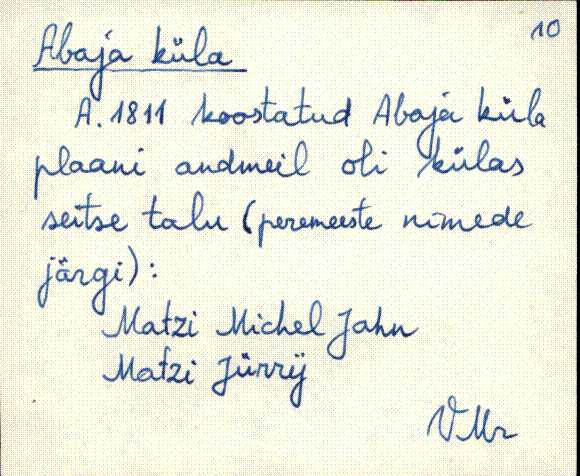 10
Abaja küla
A. 1811 koostatud Abaja küla
plaani andmeil oli külas
seitse talu (peremeeste nimede
järgi):
Matzi Michel Jahn
Matzi Jürrÿ
VMr